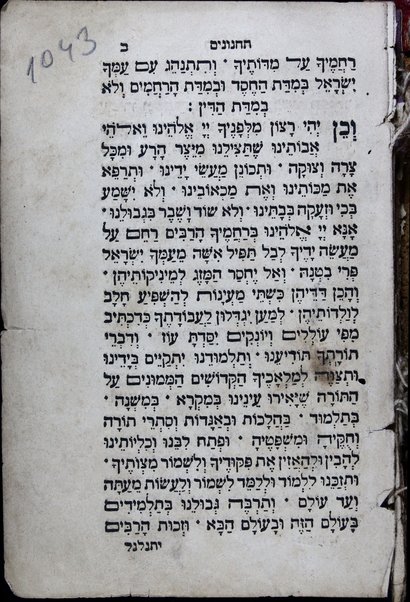 1043
תחנונים ב
רַחֲמֶיךָ עַל מִדּוֹתֶיךָ · וְתִתְנַהֵג עִם עַמְּךָ
יִשְׂרָאֵל בְּמִדַּת הַחֶסֶד וּבְמִדַּת הָרַחֲמִים וְלֹא
בְּמִדַּת הַדִּין :
וְכֵן יְהִי רָצוֹן מִלְּפָנֶיךָ יְיָ אֱלֹהֵינוּ וֵאלֹהֵי
אֲבוֹתֵינוּ שֶׁתַּצִּילֵנוּ מִיֵּצֶר הָרָע וּמִכָּל
צָרָה וְצוּקָה · וּתְכוֹנֵן מַעֲשֵׂי יָדֵינוּ · וְתִרְפָּא
אֶת מַכּוֹתֵינוּ וְאֶת מַכְאוֹבֵינוּ · וְלֹא יִשָּׁמַע
בְּכִי וּזְעָקָה בְּבָתֵּינוּ · וְלֹא שׁוֹד וָשֶׁבֶר בִּגְבוּלֵנוּ ·
אָנָּא יְיָ אֱלֹהֵינוּ בְּרַחֲמֶיךָ הָרַבִּים רַחֵם עַל
מַעֲשֵׂה יָדֶיךָ לְבַל תַּפִּיל אִשָּׁה מֵעַמְּךָ יִשְׂרָאֵל
פְּרִי בִטְנָהּ · וְאַל יֶחְסַר הַמָּזֶג לְמֵינִיקוֹתֵיהֶן ·
וְהָכֵן דַּדֵּיהֶן כִּשְׁתֵּי מַעְיָנוֹת לְהַשְׁפִּיעַ חָלָב
לְוַלְדוֹתֵיהֶן · לְמַעַן יִגְדְּלוּן לַעֲבוֹדָתְךָ כְּדִכְתִיב
מִפִּי עוֹלְלִים וְיוֹנְקִים יִסַּדְתָּ עוֹז · וְדִבְרֵי
תוֹרָתְךָ תּוֹדִיעֵנוּ · וְתַלְמוּדֵנוּ יִתְקַיֵּים בְּיָדֵינוּ
וּתְצַוֶּה לְמַלְאָכֶיךָ הַקְּדוֹשִׁים הַמְּמוּנִּים עַל
הַתּוֹרָה שֶׁיָּאִירוּ עֵינֵינוּ בְּמִקְרָא · בְּמִשְׁנָה ·
בְּתַלְמוּד · בַּהֲלָכוֹת וּבְאַגָּדוֹת וְסִתְרֵי תוֹרָה
וְחֻקֶּיהָ וּמִשְׁפָּטֶיהָ · וּפְתַח לִבֵּנוּ וְכִלְיוֹתֵינוּ
לְהָבִין וּלְהַאֲזִין אֶת פִּקּוּדֶיךָ וְלִשְׁמוֹר מִצְוֹתֶיךָ ·
וּתְזַכֵּנוּ לִלְמוֹד וּלְלַמֵּד לִשְׁמוֹר וְלַעֲשׂוֹת מֵעַתָּה
וְעַד עוֹלָם · וְתַרְבֶּה גְּבוּלֵנוּ בְּתַלְמִידִים
בָּעוֹלָם הַזֶּה וּבָעוֹלָם הַבָּא · וְזְכוּת הָרַבִּים
יתגלגל